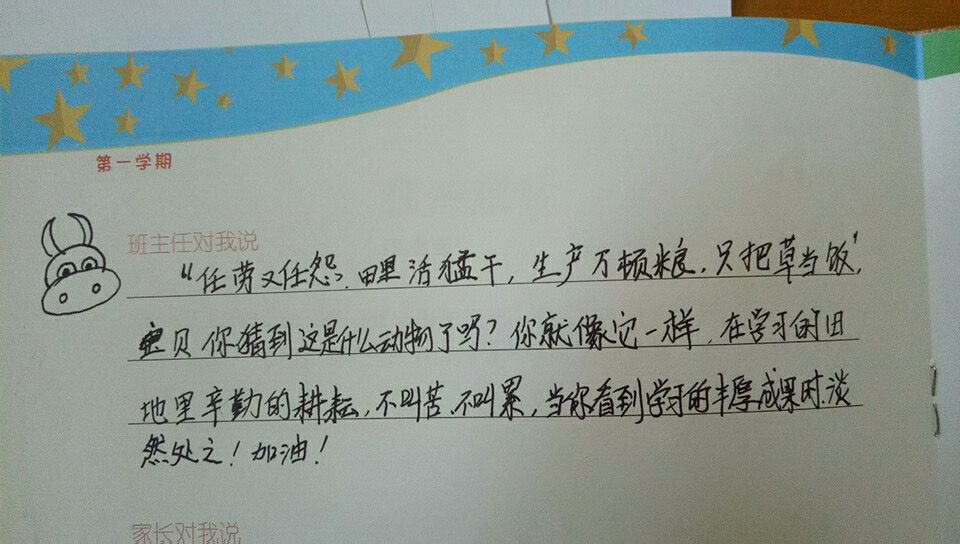 第一学期
班主任对我说
“任劳又任怨，田里活猛干，生产万顿粮，只把草当饭”，
宝贝你猜到这是什么动物了吗？你就像它一样，在学习的田
地里辛勤的耕耘，不叫苦、不叫累，当你看到学习的丰厚成果时，淡
然处之！加油！
家长对我说